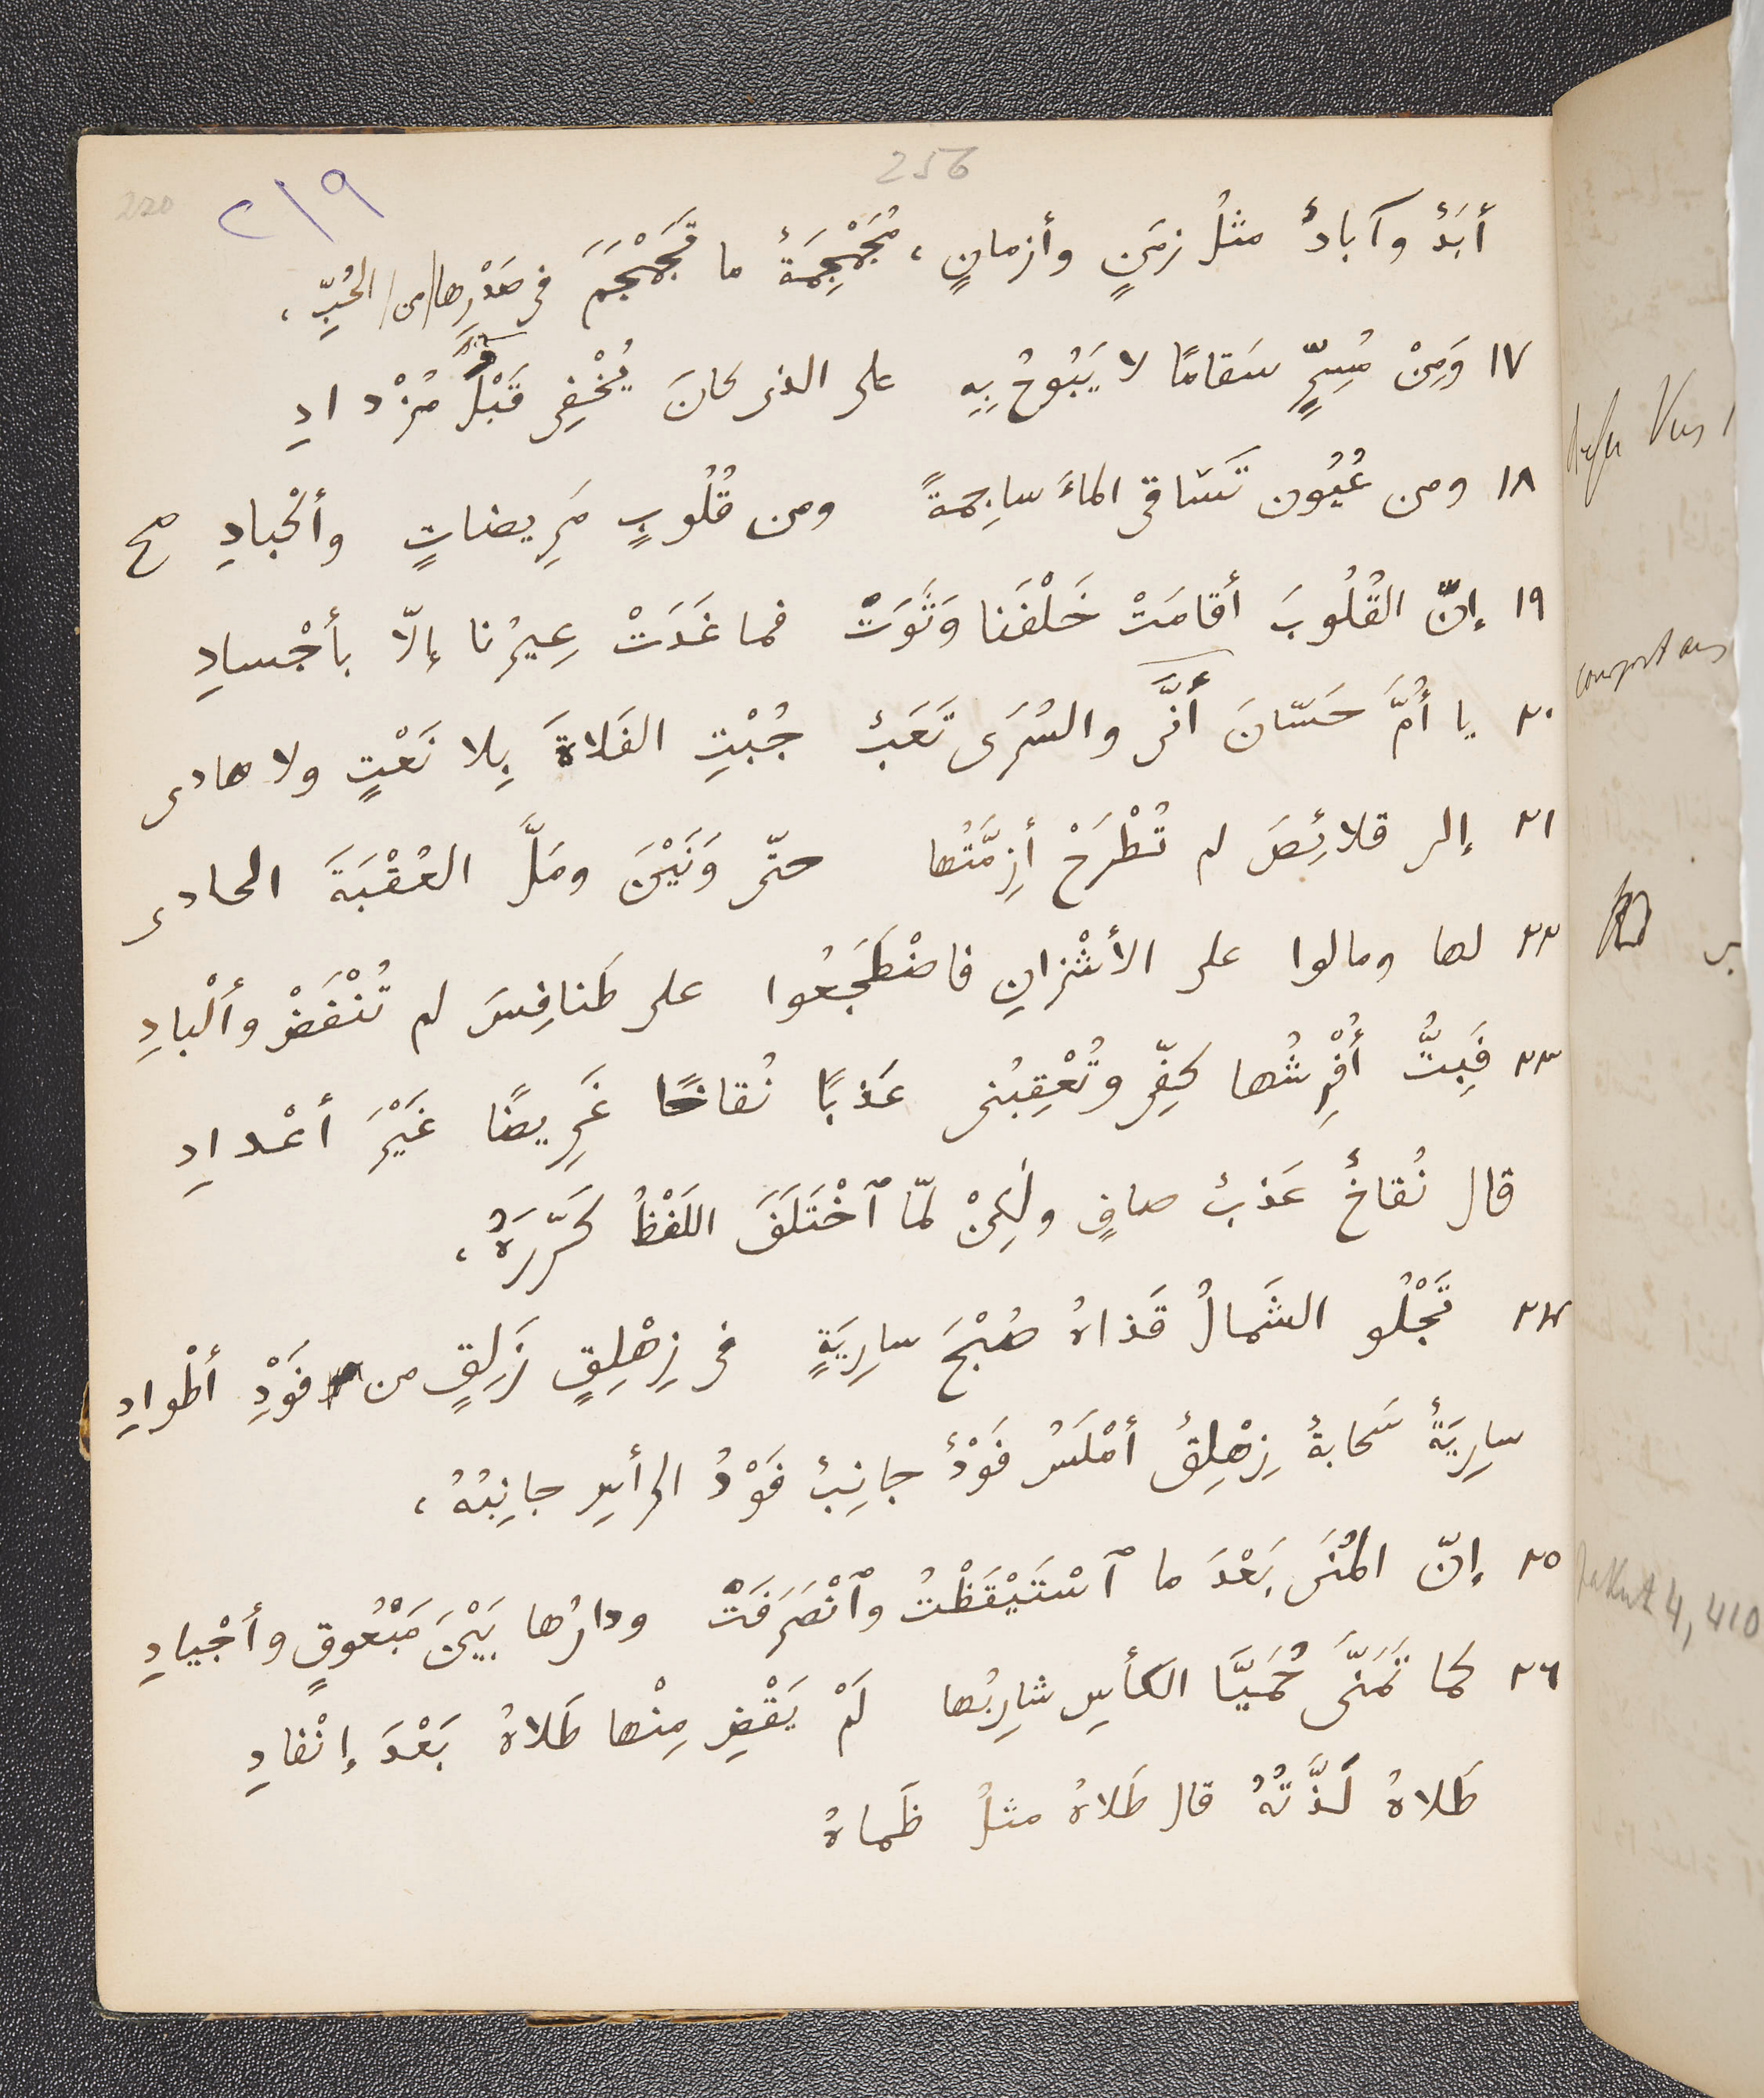 256
220
٢١٩
أَبَدٌ وآبادٌ مثلُ زمَنٍ وأزمانٍ ، مُجَمْجِمَةٌ ما تَجَمْجَمَ فى صَدْرِها من الحُبِّ ،
١٧ وَمِنْ مُسِرٍّ سَقامًا لا يَبُوحُ بِهِ على الذى كانَ يُخْفِى قَبْلُ مُزْدادِ
١٨ ومن عُيُون تَسَاقى الماءَ ساجِمَةً ومن قُلُوبٍ مَرِيضاتٍ وأكْبادِ صح
١٩ إنّ القُلُوبَ أقامَتْ خَلْفَنا وَثَوَتْ فما غَدَتْ عِيرُنا إلّا بأجْسادِ
٢٠ يا أُمَّ حَسّانَ أَنَّى والسُرَى تَعَبٌ جُبْتِ الفَلاةَ بِلا نَعْتٍ ولا هادى
٢١ إلى قلائِصَ لم تُطْرَحْ أزِمَّتُها حتّى وَنَيْنَ ومَلَّ العُقْبَةَ الحادى
٢٢ لها ومالوا على الأشْزانِ فاضْطَجَعُوا على طَنافِسَ لم تُنْفَضْ وألْبادِ
٢٣ فَبِتُّ أُفْرِشُها كفِّى وتُعْقِبُنى عَذبًا نُقاخًا غَرِيضًا غَيْرَ أعْدادِ
قال نُقاخٌ عَذبٌ صافٍ ولٰكِنْ لمّا ٱخْتَلَفَ اللَفْظُ كَرَّرَهُ ،
٢٤ تَجْلُو الشَمالُ قَذاهُ صُبْحَ سارِيَةٍ فى زِهْلِقٍ زَلِقٍ من فَوْدِ أطْوادِ
سارِيَةٌ سَحابةٌ زِهْلِقٌ أمْلَسُ فَوْدٌ جانِبٌ فَوْدُ الرأسِ جانِبُهُ ،
٢٥ إنّ المُنَى بَعْدَ ما ٱسْتَيْقَظْتُ وٱنْصَرَفَتْ ودارُها بَيْنَ مَبْعُوقٍ وأجْيادِ
٢٦ كما تَمَنَّى حُمَيَّا الكأسِ شارِبُها لَمْ يَقْضِ مِنْها طَلاهُ بَعْدَ إنْفادِ
طَلاهُ لَذَّتُهُ قال طَلاهُ مثلُ ظَماهُ
4, 410